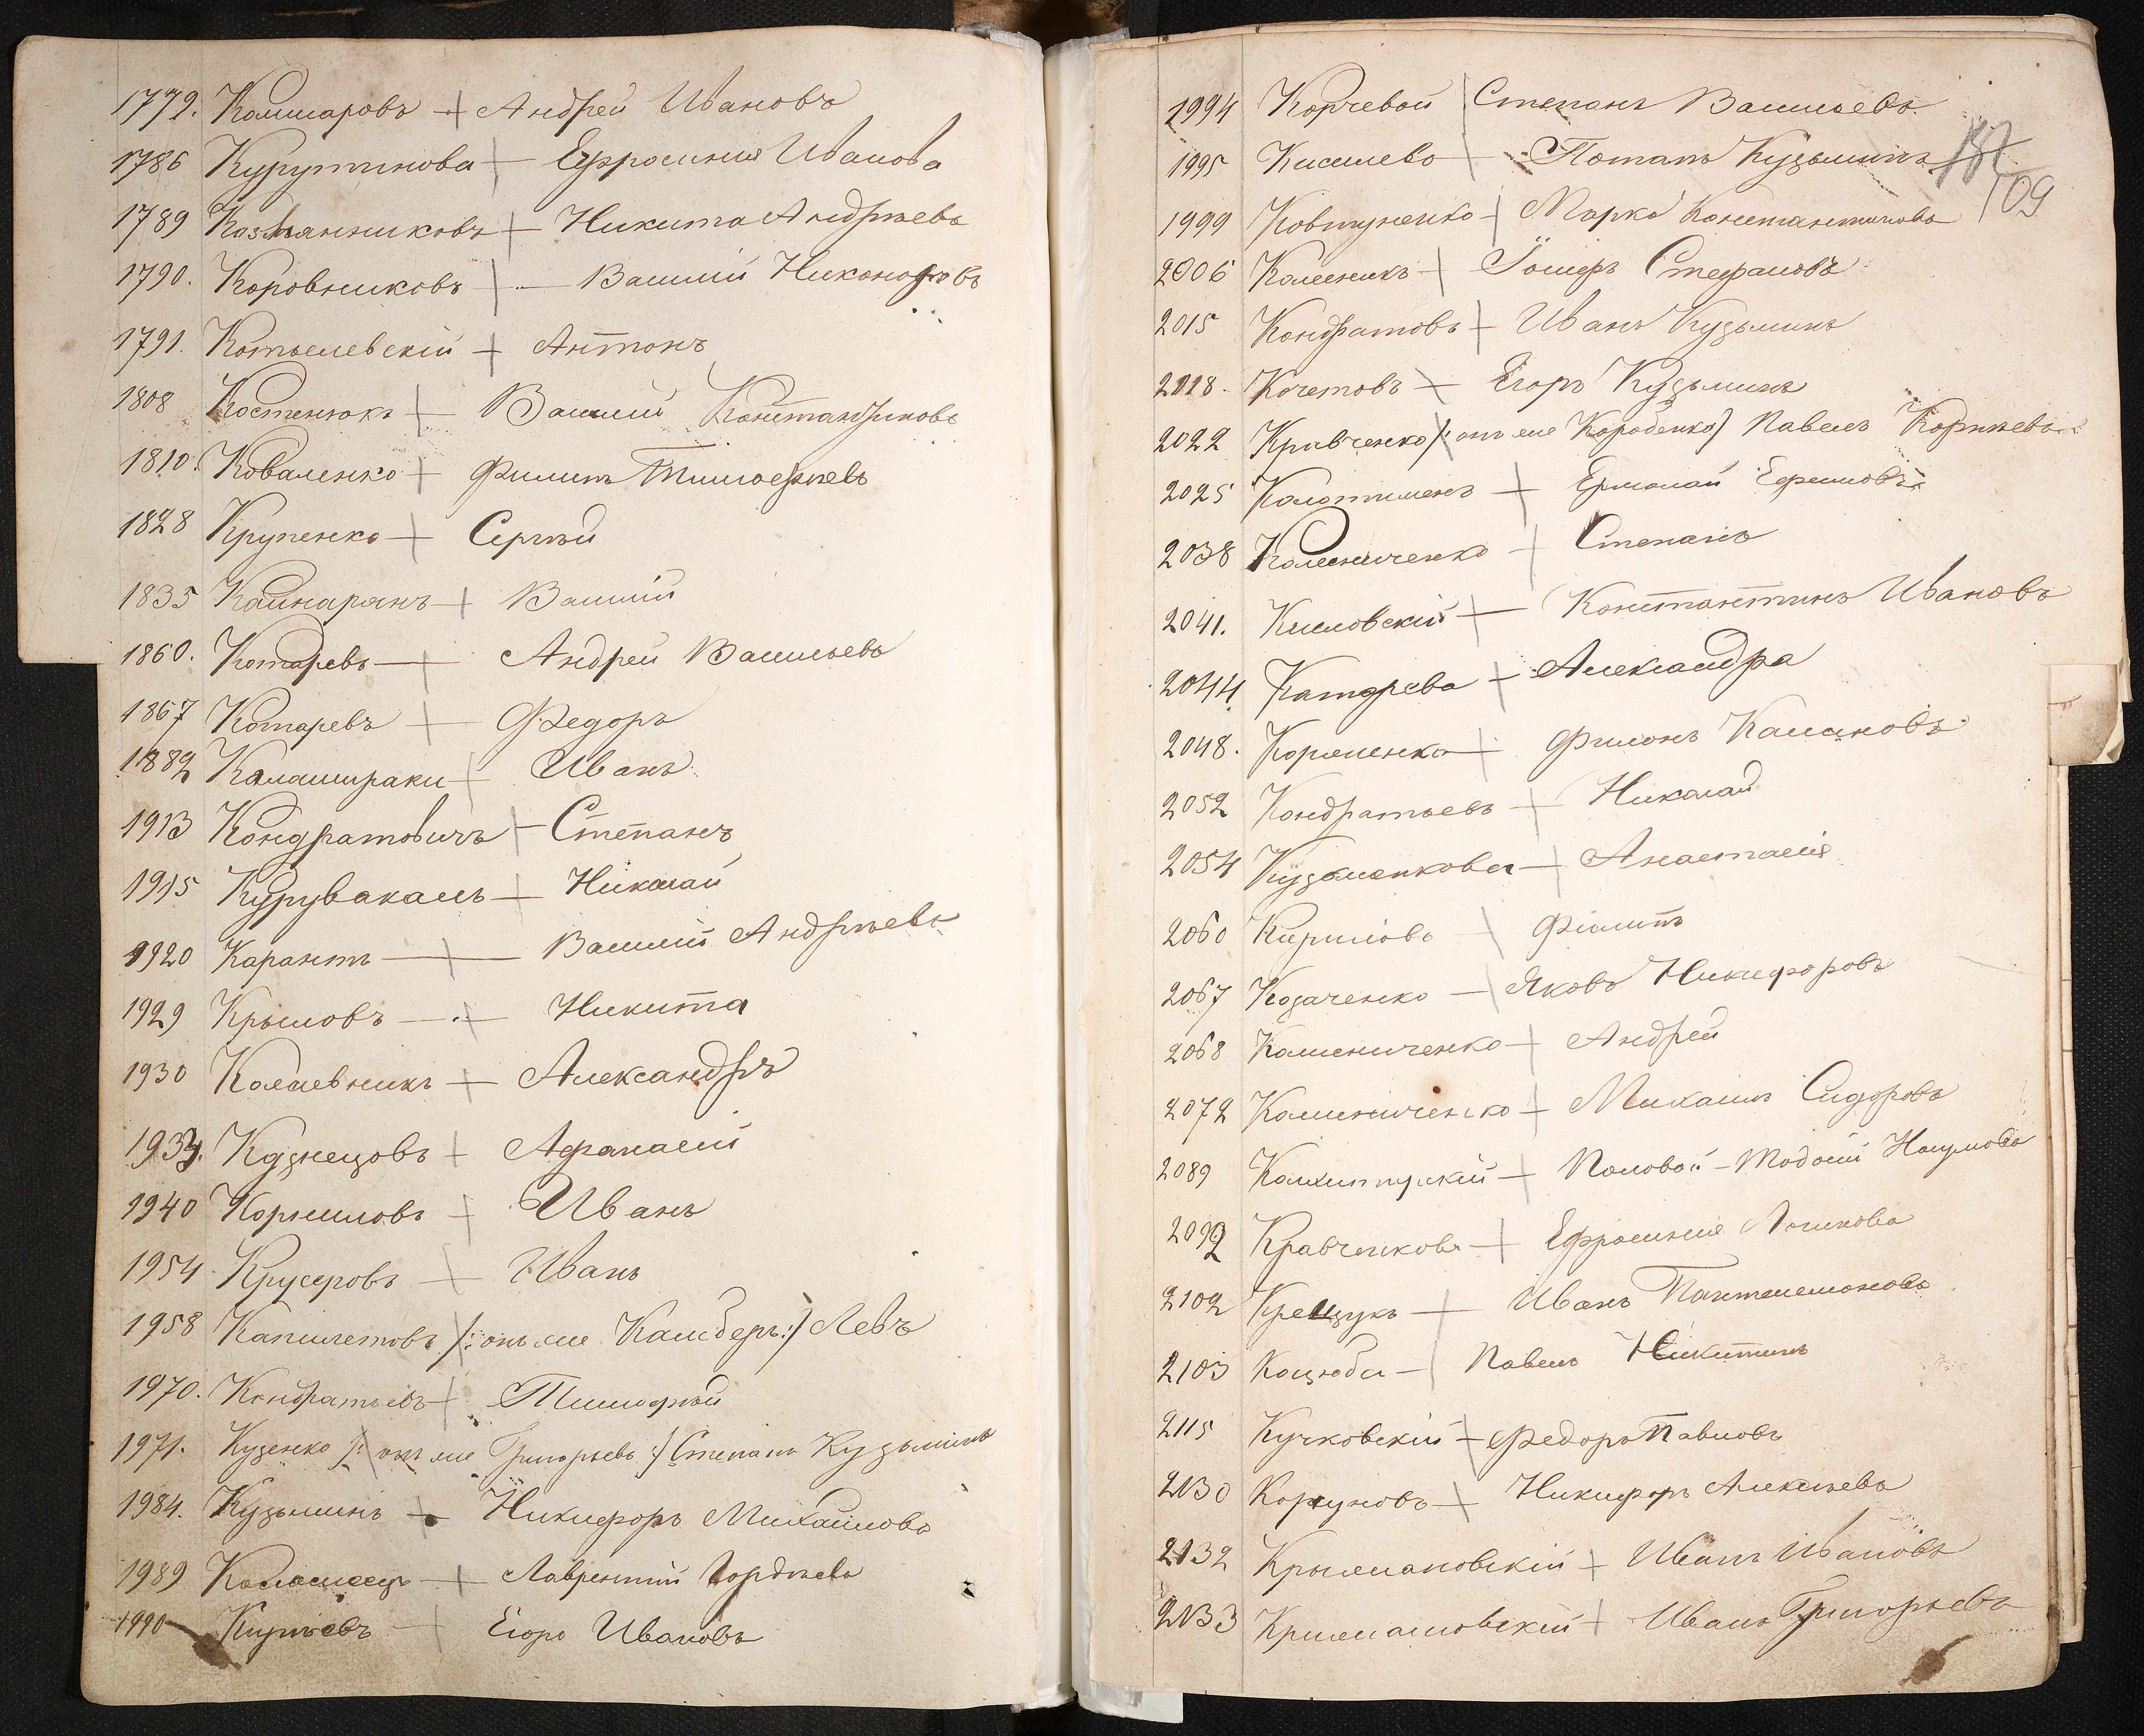 1779. Кашшаровъ Андрей Ивановъ
1786 Курутинова Ефросинія Иванова
1789 Никита Андрѣевъ
1790. Коровниковъ Василій Никоноровъ
1791. Котелевскій Антонъ
1808 Костенюкъ Василій
1810. Коваленко Филипъ Тимофѣевъ
1828 Крупенко Сергѣй
1835 Кайнаранъ Василій
1860. Котаревъ Андрей Васильевъ
1867 Котаревъ Федоръ
1882 Иванъ
1913 Кондратовичъ Степанъ
1915 Курувакаль Николай
1920 Карантъ Василій Андрѣевъ
1929 Крыловъ Никита
1930 Александръ
1934. Кузнецовъ Афанасій
1940 Корниловъ Иванъ
1954 Крусеровъ Иванъ
1958 Капилетовъ /: онъ же Камберъ :/ Левъ
1970. Кондратьевъ Тимофѣй
1971. Кузенко /: онъ же Григорьевъ :/ Степанъ Кузьминъ
1984. Кузьминъ Никифоръ Михайловъ
1989 Лаврентій Гордѣевъ
1990 Егоръ Ивановъ
187
109
1994 Корчевой Степанъ Васильевъ
1995 Киселево Потапъ Кузьминъ
1999 Ковтуненко Марко Константиновъ
2006 Колесникъ Іосифъ Стефановъ
2015 Кондратовъ Иванъ Кузьминъ
2018. Кочетовъ Егоръ Кузьминъ
2022 Кравченко /: онъ же Коробенко / Павелъ Корнѣевъ
2025 Ермолай Ефимовъ
2038 Колесниченко Степанъ
2041. Кисловскій Константинъ Ивановъ
2044 Катарева Александра
2048. Филонъ
2052 Кондратьевъ Николай
2054 Кузьменкова Анастасія
2060 Кириловъ Филипъ
2067 Козаченко Яковъ Никифоровъ
2068 Колесниченко Андрей
2072 Колесниченко Михаилъ Сидоровъ
2089 Наумовъ
2092 Кравченкова Ефросинія
2102 Крещукъ Иванъ Пантелемоновъ
2103 Коцюба Павелъ Никитинъ
2115 Кучковскій Федоръ Павловъ
2130 Коршуновъ Никифоръ Алексѣевъ
2132 Крыжановскій Иванъ Ивановъ
2133 Крижановскій Иванъ Григорьевъ